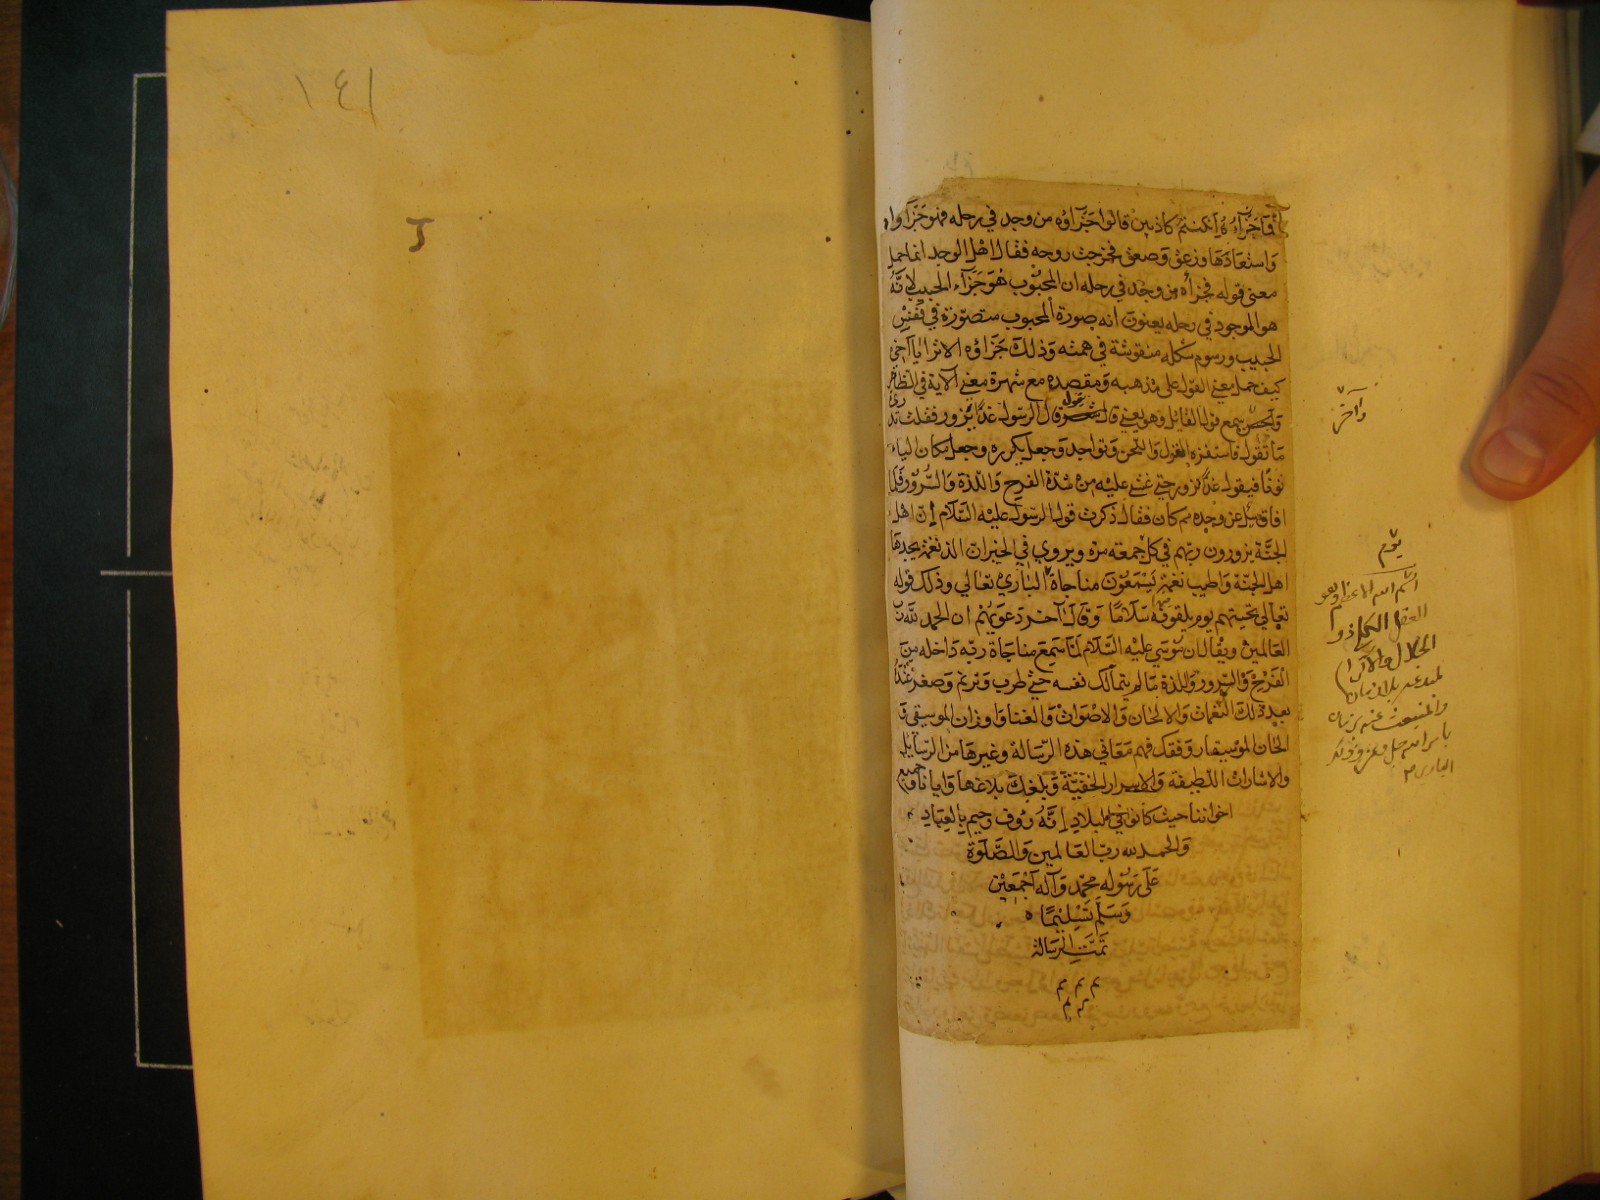 ١٤١
فما جزآؤه ان كنتم كاذبين قالوا جزآؤه من وجد في رحله فهو جزآؤه
واستعادها وزعق وصعق فخرجت روحه فقال اهل الوجد انما حمل
معنى قوله جزاؤه من وجد في رحله ان المحبوب هو جزآء الحبيب لانه
هو الموجود في رحله يعنون انه صورة المحبوب متصورة في نفس
الحبيب ورسوم شكله منقوشة في همته وذلك جزاؤه الا ترا يا اخي
كيف حمل معنى القول على مذهبه ومقصده مع شهرة معنى الآية في الظاهر
سمع قول القايل وهو يغني قال الرسول غدا تزور فقلت تدري
ما تقول فاستفزه القول واللحن وتواجد وجعل يكرره وجعل مكان الياء
نونا فيقول غدا نزور حتى غشي عليه من شدة الفرح واللذة والسرور فلما
افاق سئل عن وجده مم كان فقال ذكرت قول الرسول عليه السلام ان اهل
الجنة يزورون ربهم في كل جمعة مرة ويروي في الخبر ان الذ نغمة يجدها
اهل الجنة واطيب نغمة يسمعون مناجاة الباري تعالى وذلك قوله
تعالى تحيتهم يوم يلقونه سلاما وقال آخر دعويهم ان الحمد لله رب
العالمين ويقال ان موسى عليه السلام لما سمع مناجاة ربه داخله من
الفرح والسرور واللذة ما لم يتمالك نفسه حتى طرب وترنم وصغر عنده
بعد ذلك النغمات والالحان والاصوات والغنا واوزان الموسيقى و
الحان الموسيقار وفقك فهم معاني هذه الرسالة وغيرها من الرسايل
والاشارات اللطيفة والاسرار الخفية وبلغك بلاغها وايانا وجميع
اخواننا حيث كانوا في البلاد انه رؤف رحيم بالعباد
والحمد لله رب العالمين والصلوة
على رسوله محمد وآله اجمعين
وسلم تسليما
تمت الرسالة
م م م
وآخر
اسم الله الاعظم وهو
العقل الكلي ذو
الجلال والاكرام